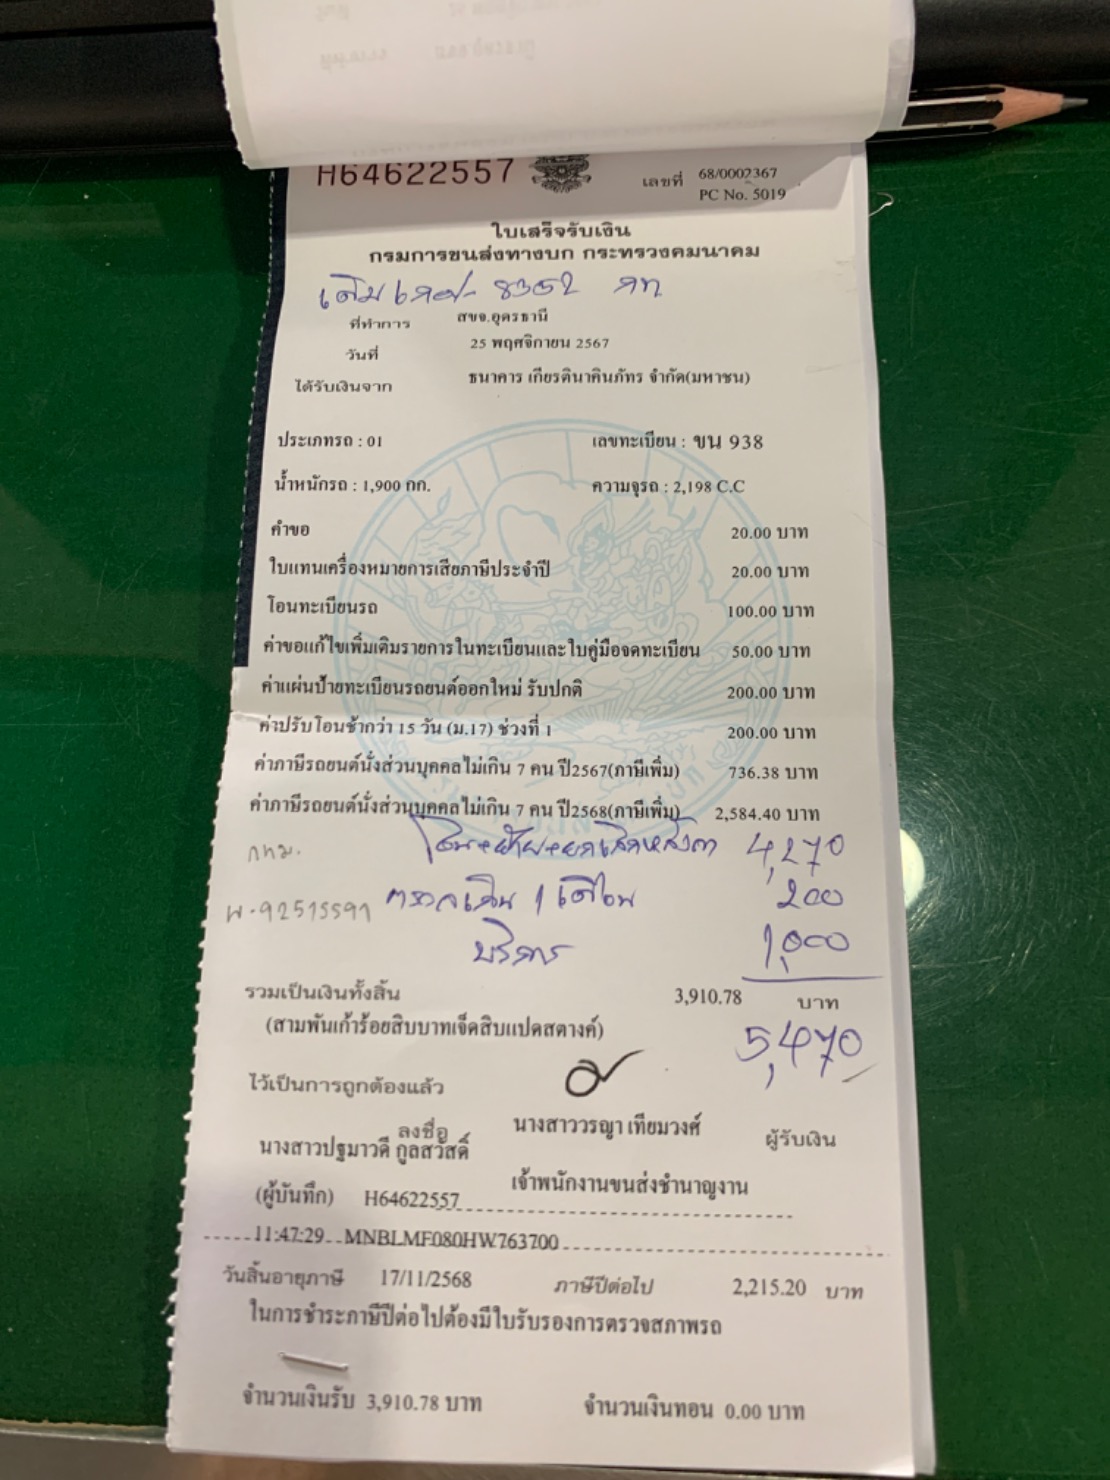 H64622557
เลขที่ 68/0002367
PC No. 5019
ใบเสร็จรับเงิน
กรมการขนส่งทางบก กระทรวงคมนาคม
เดิม 8352 กท
ที่ทำการ สขจ.อุดรธานี
วันที่ 25 พฤศจิกายน 2567
ได้รับเงินจาก ธนาคาร เกียรตินาคินภัทร จำกัด(มหาชน)
ประเภทรถ : 01 เลขทะเบียน : ขน 938
น้ำหนักรถ : 1,900 กก. ความจุรถ : 2,198 C.C
คำขอ 20.00 บาท
ใบแทนเครื่องหมายการเสียภาษีประจำปี 20.00 บาท
โอนทะเบียนรถ 100.00 บาท
ค่าขอแก้ไขเพิ่มเติมรายการในทะเบียนและใบคู่มือจดทะเบียน 50.00 บาท
ค่าแผ่นป้ายทะเบียนรถยนต์ออกใหม่ รับปกติ 200.00 บาท
ค่าปรับโอนช้ากว่า 15 วัน (ม.17) ช่วงที่ 1 200.00 บาท
ค่าภาษีรถยนต์นั่งส่วนบุคคลไม่เกิน 7 คน ปี2567(ภาษีเพิ่ม) 736.38 บาท
ค่าภาษีรถยนต์นั่งส่วนบุคคลไม่เกิน 7 คน ปี2568(ภาษีเพิ่ม) 2,584.40 บาท
กทม. โอน+ย้าย+ยกเลิกหลังคา 4,270
พ.92515591 ตรวจเกิน 1 เดือน 200
บริการ 1,000
รวมเป็นเงินทั้งสิ้น 3,910.78 บาท
(สามพันเก้าร้อยสิบบาทเจ็ดสิบแปดสตางค์) 5,470
ไว้เป็นการถูกต้องแล้ว
ลงชื่อ นางสาววรญา เทียมวงศ์ ผู้รับเงิน
นางสาวปฐมาวดี กูลสวัสดิ์
(ผู้บันทึก) H64622557 เจ้าพนักงานขนส่งชำนาญงาน
11:47:29 MNBLMF080HW763700
วันสิ้นอายุภาษี 17/11/2568 ภาษีปีต่อไป 2,215.20 บาท
ในการชำระภาษีปีต่อไปต้องมีใบรับรองการตรวจสภาพรถ
จำนวนเงินรับ 3,910.78 บาท จำนวนเงินทอน 0.00 บาท